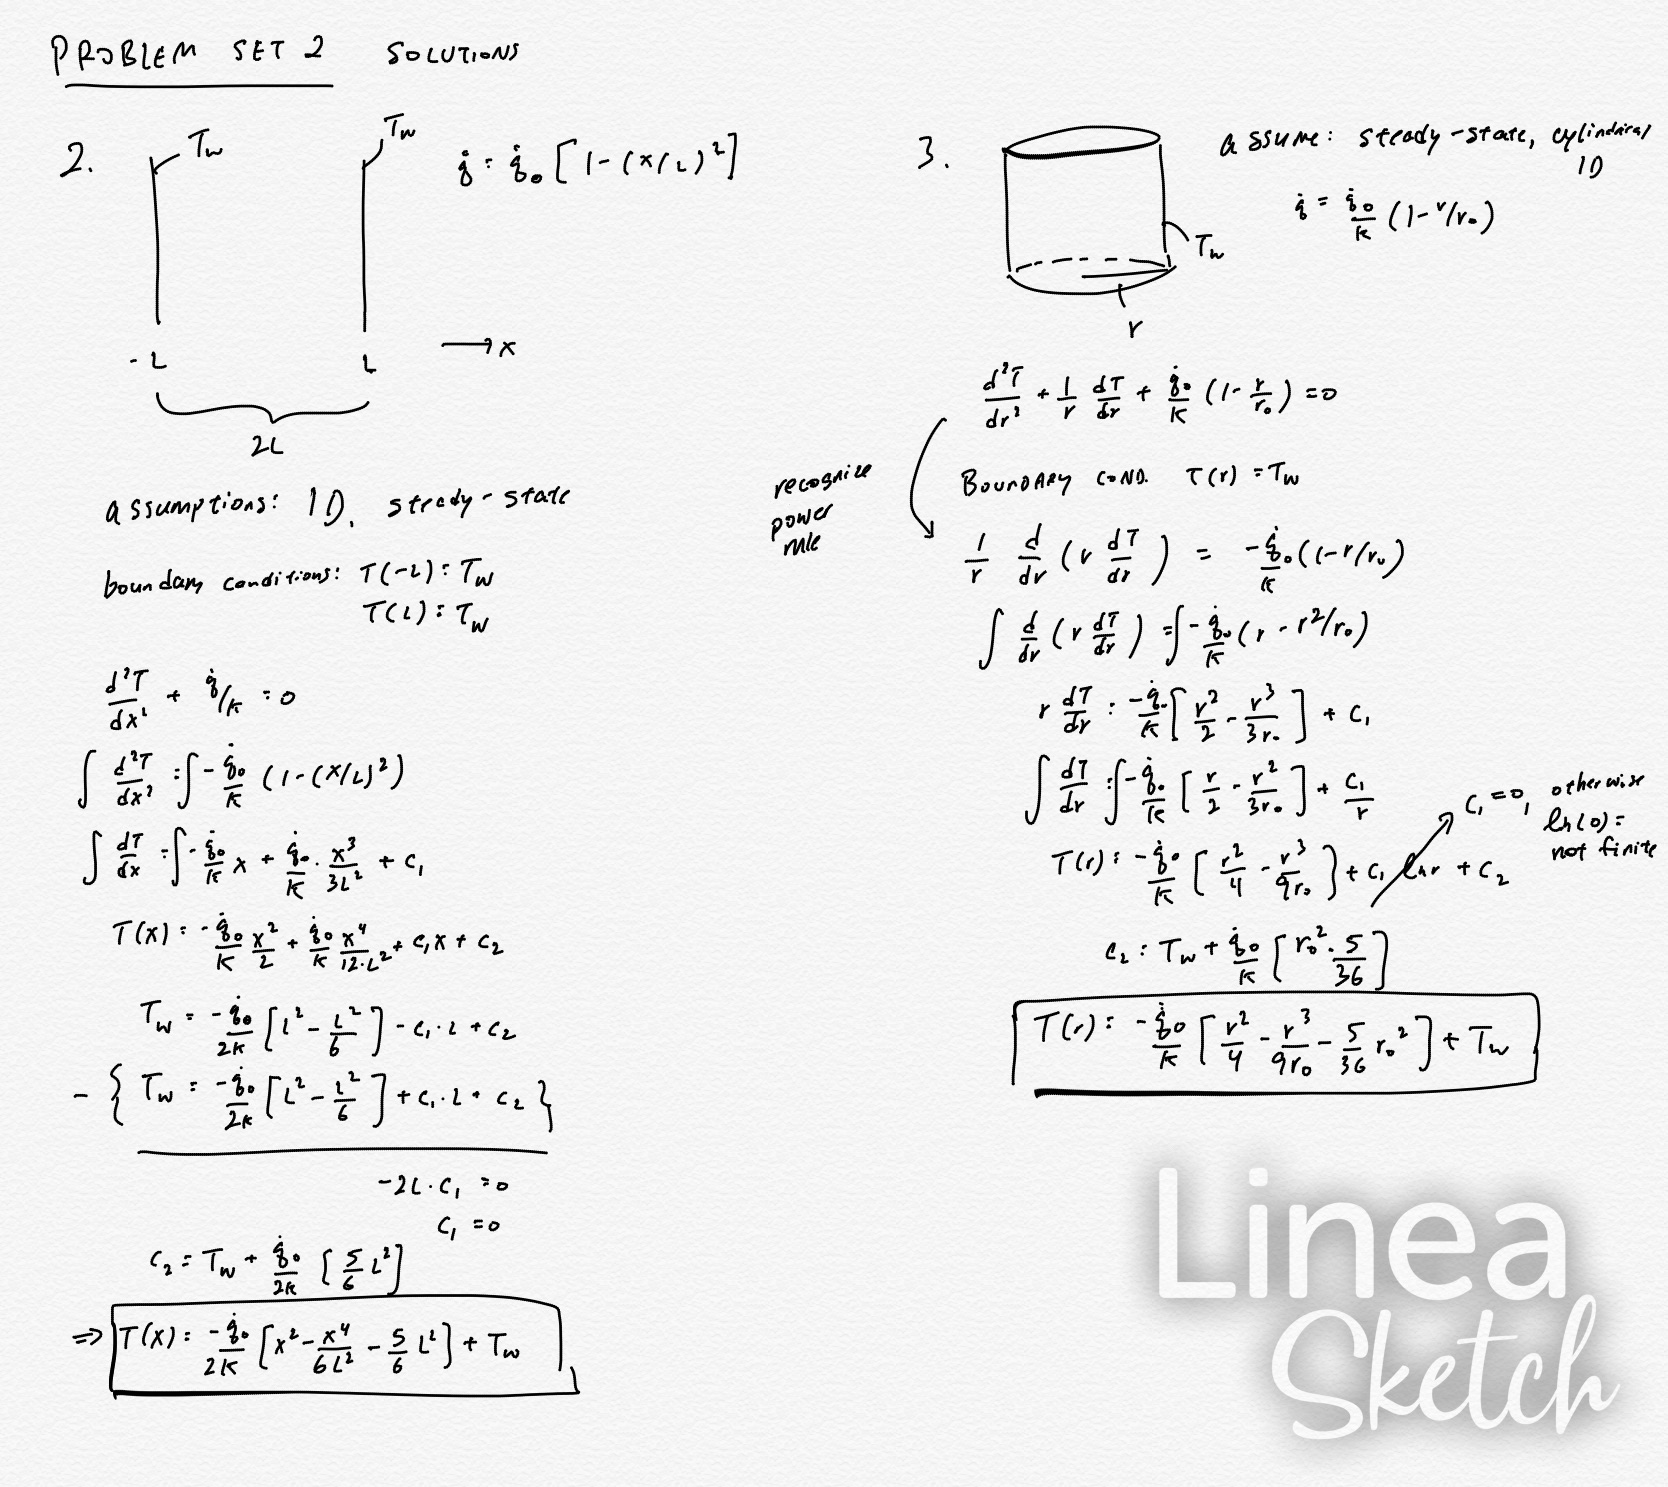 PROBLEM SET 2 SOLUTIONS
2.
T_w
T_w
q̇ = q̇₀ [1 - (x/L)²]
-L
L
→ x
2L
assumptions: 1D, steady-state
boundary conditions: T(-L) = T_w
T(L) = T_w
d²T/dx² + q̇/k = 0
∫ d²T/dx² = ∫ -q̇₀/k (1 - (x/L)²)
∫ dT/dx = ∫ -q̇₀/k x + q̇₀/k · x³/3L² + C₁
T(x) = -q̇₀/k x²/2 + q̇₀/k x⁴/12·L² + C₁x + C₂
T_w = -q̇₀/2k [L² - L²/6] - C₁·L + C₂
- { T_w = -q̇₀/2k [L² - L²/6] + C₁·L + C₂ }
-2L·C₁ = 0
C₁ = 0
C₂ = T_w + q̇₀/2k [5/6 L²]
⇒ T(x) = -q̇₀/2k [x² - x⁴/6L² - 5/6 L²] + T_w
3.
assume: steady-state, cylindrical
1D
q̇ = q̇₀/k (1 - r/r₀)
T_w
r
d²T/dr² + 1/r dT/dr + q̇₀/k (1 - r/r₀) = 0
BOUNDARY COND. T(r) = T_w
recognize
power
rule
1/r d/dr (r dT/dr) = -q̇₀/k (1 - r/r₀)
∫ d/dr (r dT/dr) = ∫ -q̇₀/k (r - r²/r₀)
r dT/dr = -q̇₀/k [r²/2 - r³/3r₀] + C₁
∫ dT/dr = ∫ -q̇₀/k [r/2 - r²/3r₀] + C₁/r
C₁ = 0, otherwise
ln(0) =
not finite
T(r) = -q̇₀/k [r²/4 - r³/9r₀] + C₁ ln r + C₂
C₂ = T_w + q̇₀/k [r₀² · 5/36]
T(r) = -q̇₀/k [r²/4 - r³/9r₀ - 5/36 r₀²] + T_w
Linea
Sketch